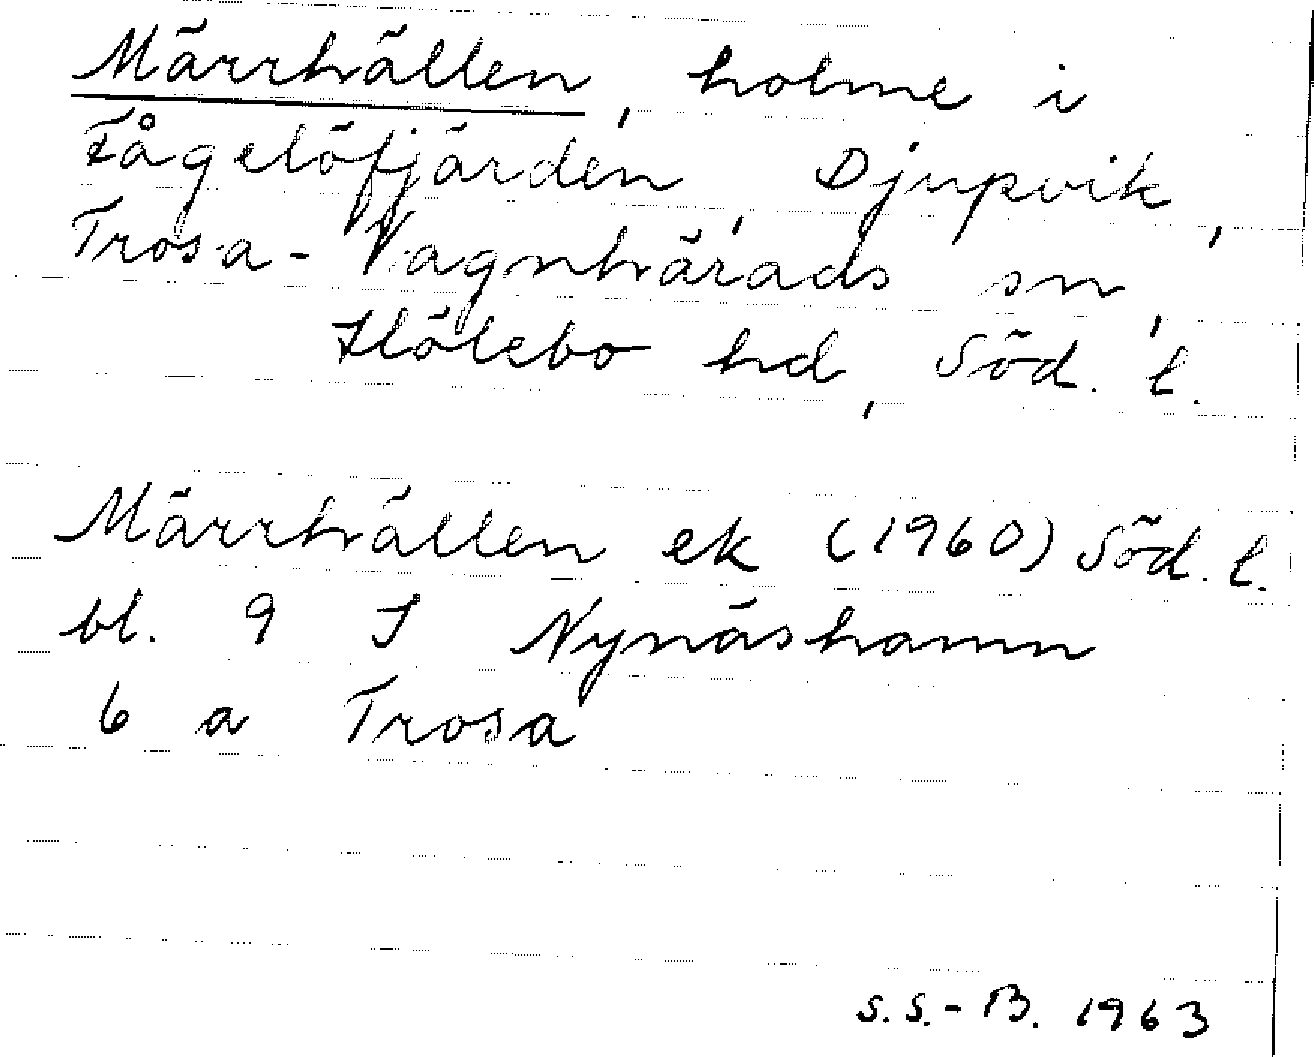 Märrhällen, holme i
Fågelöfjärden, Djupvik,
Trosa-Vagnhärads sn,
Hölebo hd, Söd. l.
Märrhällen ek (1960) Söd. l.
bl. 9 I Nynäshamn
6 a Trosa
S.S.-B. 1963